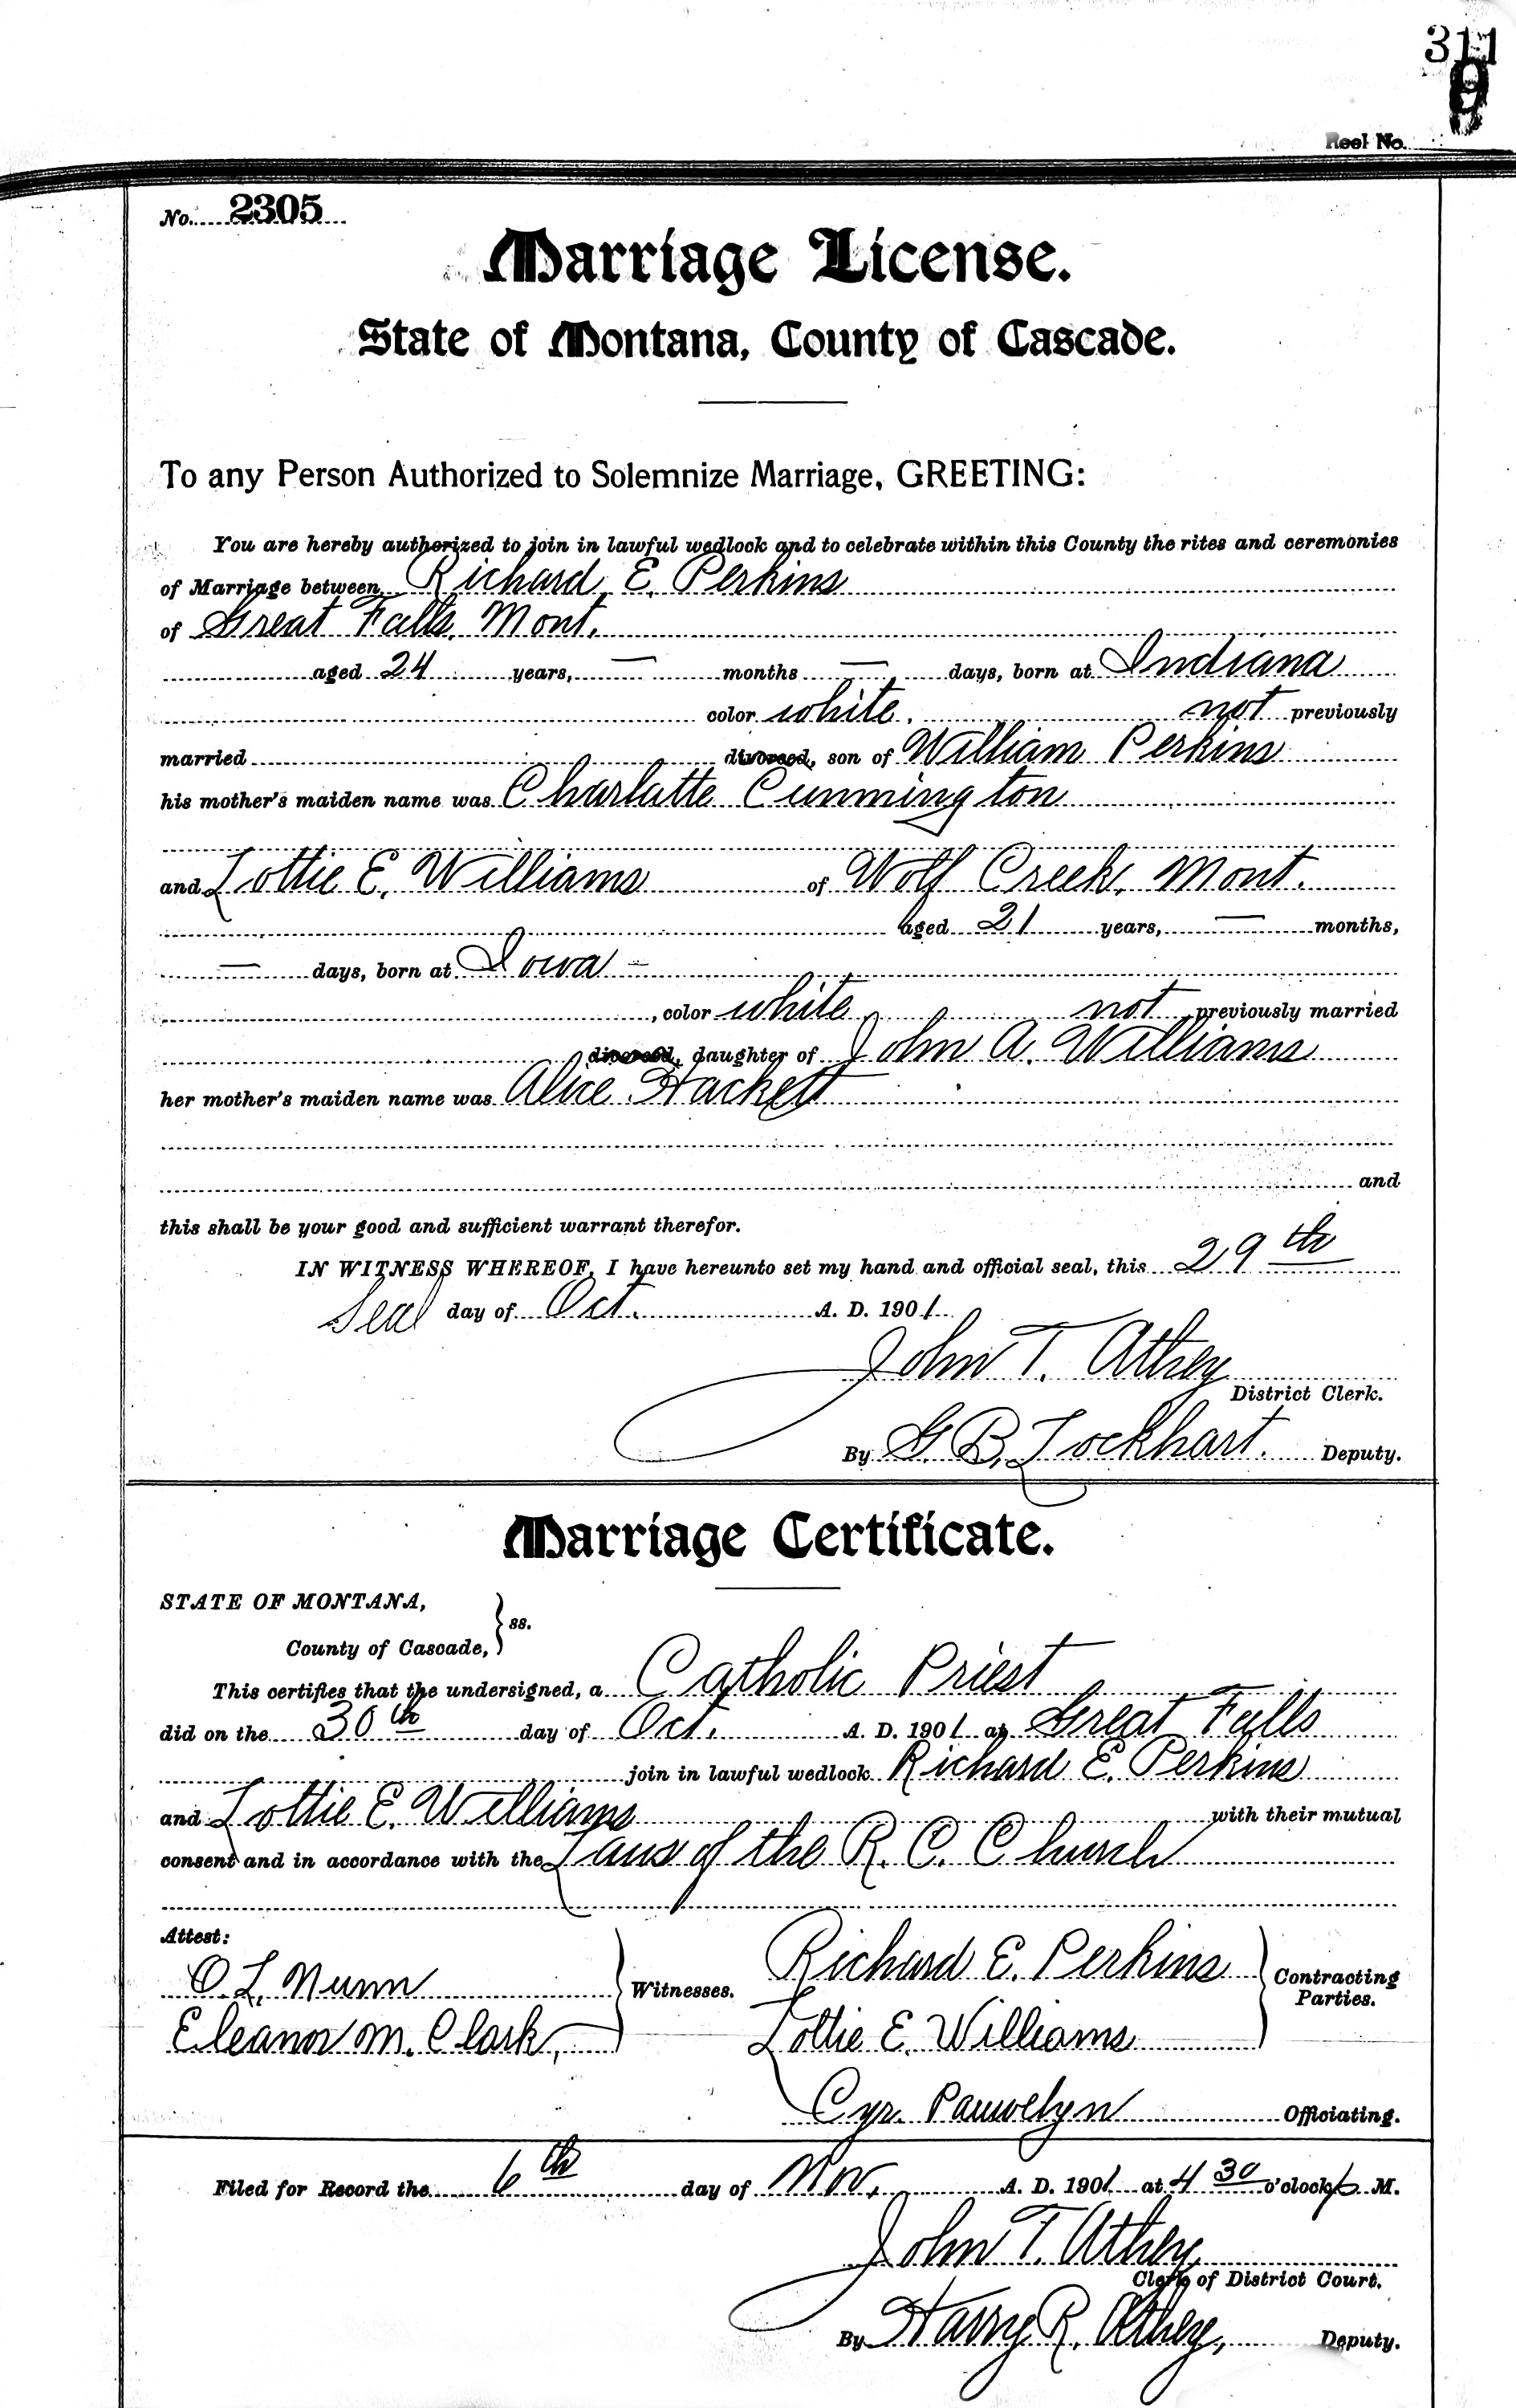 311
9
Reel No.
No. 2305
Marriage License.
State of Montana, County of Cascade.
To any Person Authorized to Solemnize Marriage, GREETING:
You are hereby authorized to join in lawful wedlock and to celebrate within this County the rites and ceremonies
of Marriage between Richard E. Perkins
of Great Falls, Mont.
aged 24 years, — months — days, born at Indiana
color white. not previously
married divorced, son of William Perkins
his mother's maiden name was Charlatte Cunnington
and Lottie E. Williams of Wolf Creek, Mont.
aged 21 years, — months,
— days, born at Iowa –
, color white, not previously married
divorced, daughter of John A. Williams
her mother's maiden name was Alice Hackett
and
this shall be your good and sufficient warrant therefor.
IN WITNESS WHEREOF, I have hereunto set my hand and official seal, this 29th
Seal day of Oct. A. D. 1901
John T. Athey
District Clerk.
By G. B. Lockhart. Deputy.
Marriage Certificate.
STATE OF MONTANA,
ss.
County of Cascade,
This certifies that the undersigned, a Catholic Priest
did on the 30th day of Oct. A. D. 1901 at Great Falls
join in lawful wedlock Richard E. Perkins
and Lottie E. Williams with their mutual
consent and in accordance with the Laws of the R. C. Church
Attest:
O. L. Nunn Witnesses. Richard E. Perkins Contracting Parties.
Eleanor M. Clark, Lottie E. Williams
Cyr. Pauwelyn Officiating.
Filed for Record the 6th day of Nov. A. D. 1901 at 4 30 o'clock p M.
John T. Athey
Clerk of District Court.
By Harry R. Athey, Deputy.